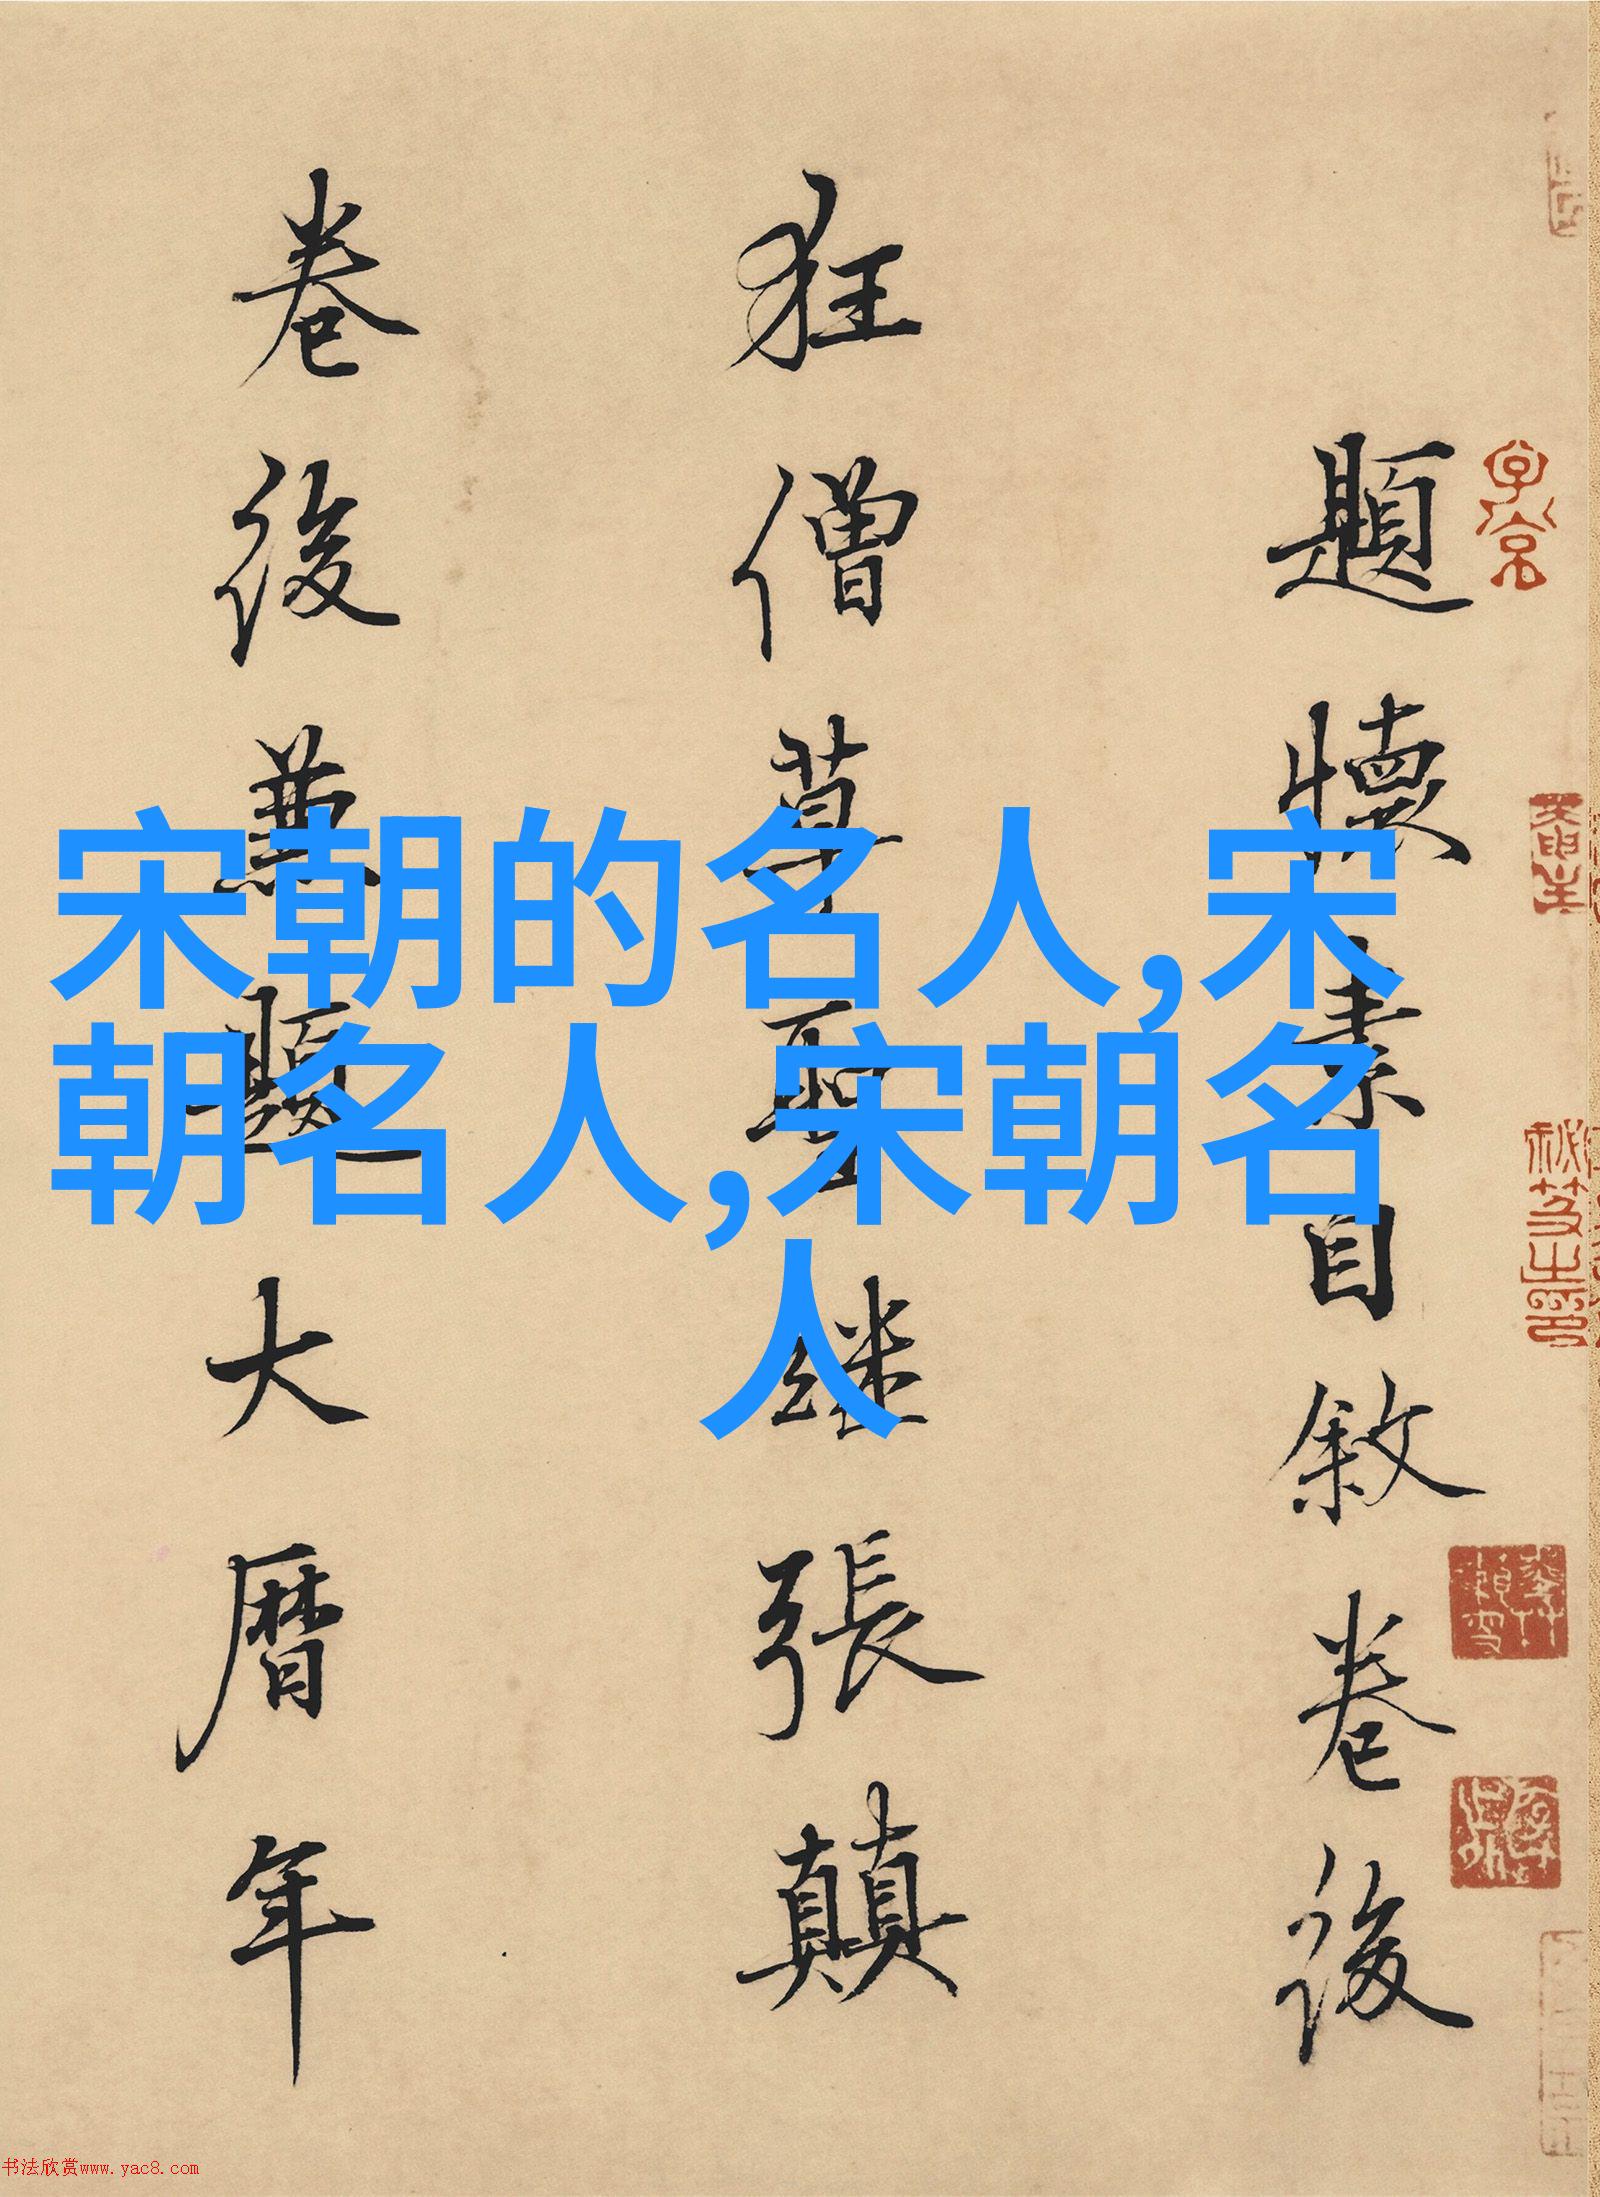 宋朝的名人,宋
朝名人,宋朝名
人
題懷素自敘卷後
狂僧草聖继張顛
卷後兼題大曆年
书法欣赏www.yac8.com